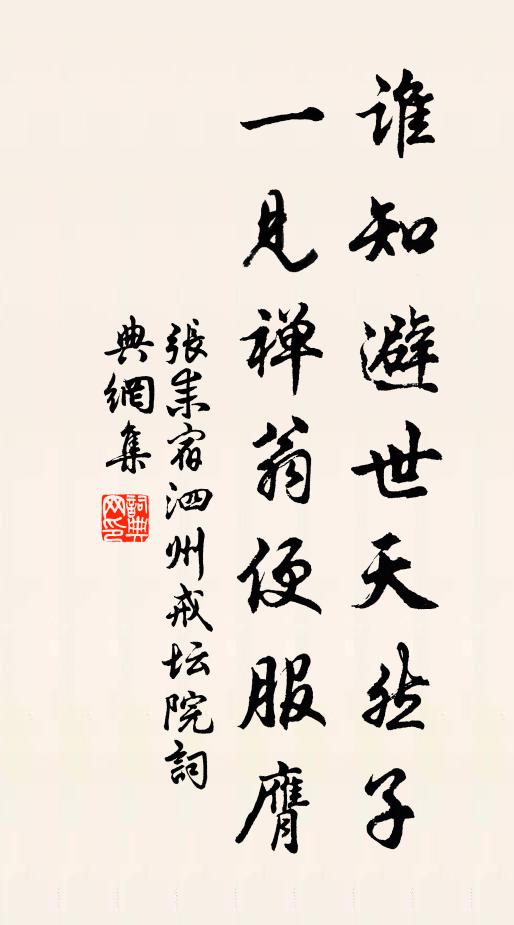 谁知避世天然子
一见禅翁便服膺
張耒宿泗州戒坛院詞
典網集
詞典網印